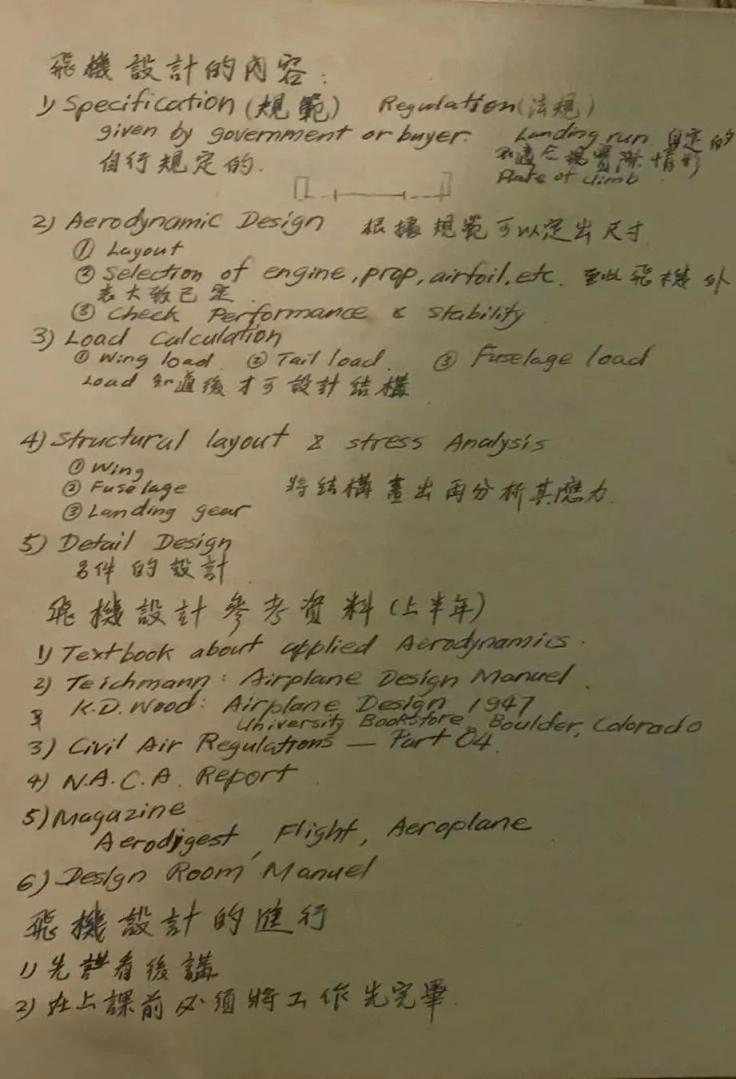 飛機設計的內容:
1) Specification (規範) Regulation (法規)
given by government or buyer. Landing run 自定的
自行規定的. 不適合現實際情形
Rate of climb
2) Aerodynamic Design 根據規範可以定出尺寸
① Layout
② Selection of engine, prop, airfoil, etc. 至此飛機外
表大致已定
③ Check Performance & Stability
3) Load Calculation
① Wing load ② Tail load ③ Fuselage load
Load 知道後才可設計結構
4) Structural layout & stress Analysis
① Wing
② Fuselage 將結構畫出再分析其應力.
③ Landing gear
5) Detail Design
各件的設計
飛機設計參考資料 (上半年)
1) Textbook about applied Aerodynamics.
2) Teichmann: Airplane Design Manuel.
K.D. Wood: Airplane Design 1947
University Bookstore, Boulder, Colorado
3) Civil Air Regulations — Part 04.
4) N.A.C.A. Report
5) Magazine
Aerodigest, Flight, Aeroplane
6) Design Room Manuel
飛機設計的進行
1) 先看後講
2) 在上課前必須將工作先完畢.